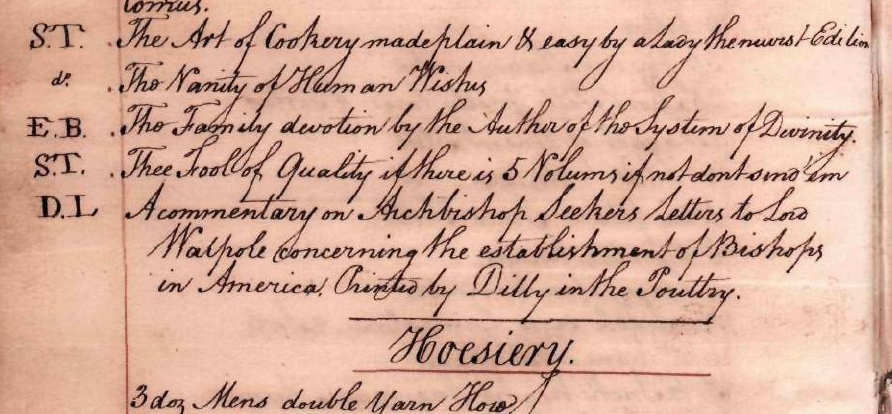 S.T. . The Art of Cookery made plain & easy by a Lady the newest Edition
do . The Vanity of Human Wishes
E.B. . The Family devotion by the Author of the System of Divinity.
S.T. . Thee Fool of Quality if there is 5 Volums if not dont send 'em
D.L A commentary on Archbishop Seekers Letters to Lord
Walpole concerning the establishment of Bishops
in America. Printed by Dilly in the Poultry.
Hoesiery.
3 doz Mens double Yarn Hose